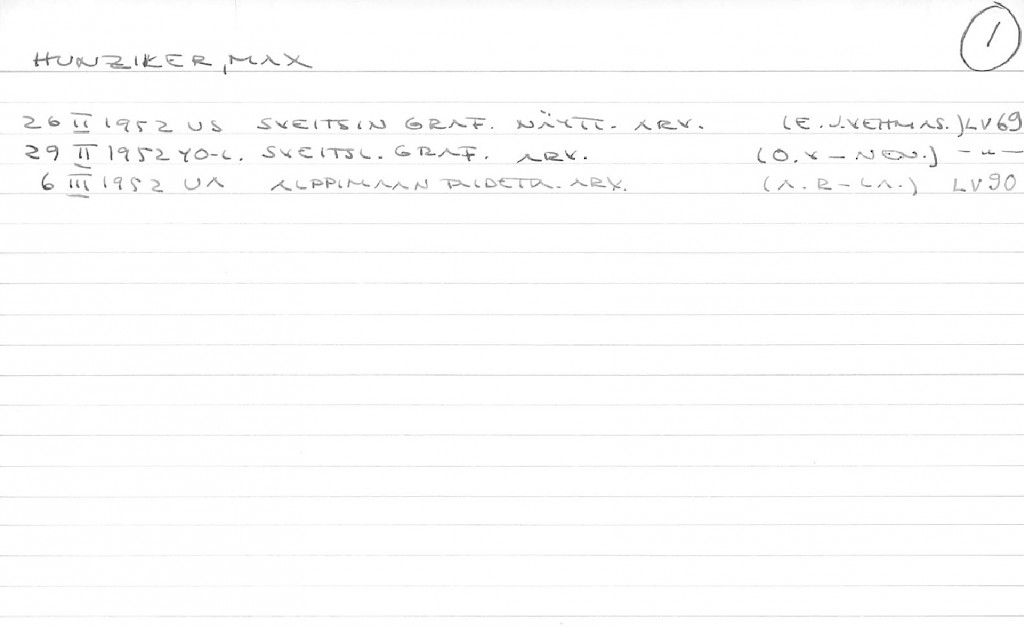 1
HUNZIKER, MAX
26 II 1952 US SVEITSIN GRAF. NÄYTT. ARV. (E. J. VEHMAS.) LV69
29 II 1952 YO-L. SVEITSL. GRAF. ARV. (O. V-NEN.) -"-
6 III 1952 UA ALPPIMAAN TAIDETTA. ARV. (A. R-LA.) LV90